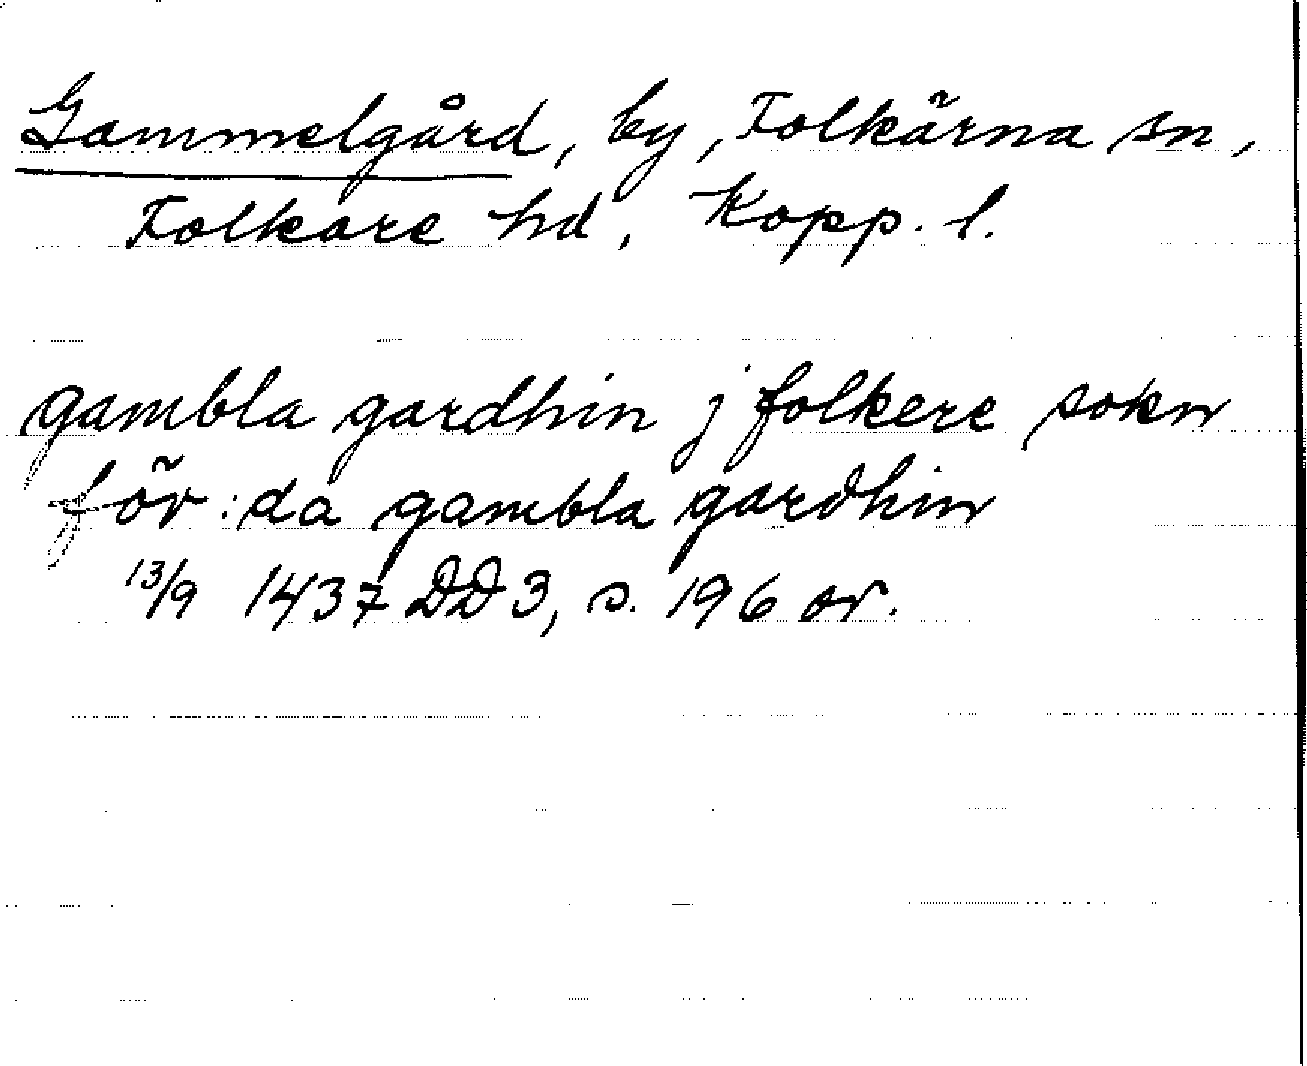 Gammelgård, by, Folkärna sn,
Folkare hd, Kopp. l.
gambla gardhin j folkere sokn
för: da gambla gardhin
13/9 1437 DD 3, s. 196 or.